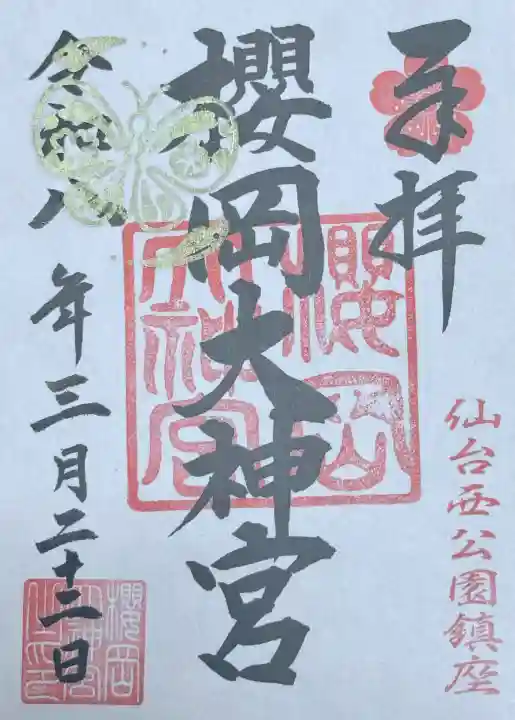 奉拝
仙台西公園鎮座
櫻岡大神宮
櫻岡大神宮
令和八年三月二十二日